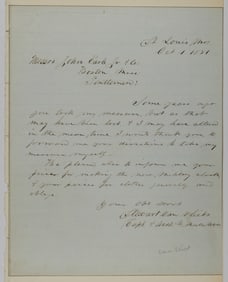 St. Louis, Mo.
Oct 1, 1881
Messrs John Earle Jr &c
Boston Mass
Gentlemen:
Some years ago
you took my measure, but as that
may have been lost, & I may have altered
in the mean time I would thank you to
forward me your directions to take my
measure myself.
Also please also to inform me your
prices for making the new military cloak
& your prices for clothes generally and
oblige
Your obt servt
Stewart Van Vliet
Capt & Asst Qr Master